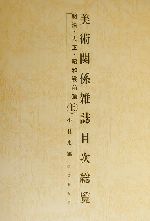 美術関係雑誌目次総覧
明治・大正・昭和戦前篇
上